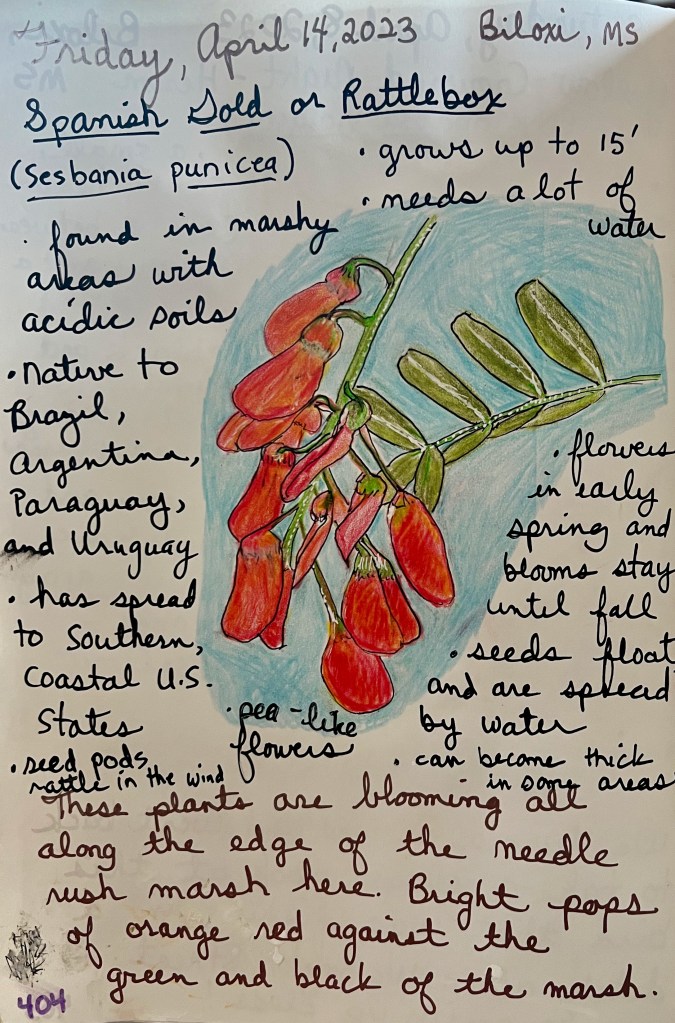 Friday, April 14, 2023 Biloxi, MS
Spanish Gold or Rattlebox
(Sesbania punicea)
• grows up to 15'
• needs a lot of
water
• found in marshy
areas with
acidic soils
• native to
Brazil,
Argentina,
Paraguay,
and Uruguay
• has spread
to Southern,
Coastal U.S.
States
• seed pods
rattle in the wind
• pea-like
flowers
• flowers
in early
spring and
blooms stay
until fall
• seeds float
and are spread
by water
• can become thick
in some areas
These plants are blooming all
along the edge of the needle
rush marsh here. Bright pops
of orange red against the
green and black of the marsh.
404